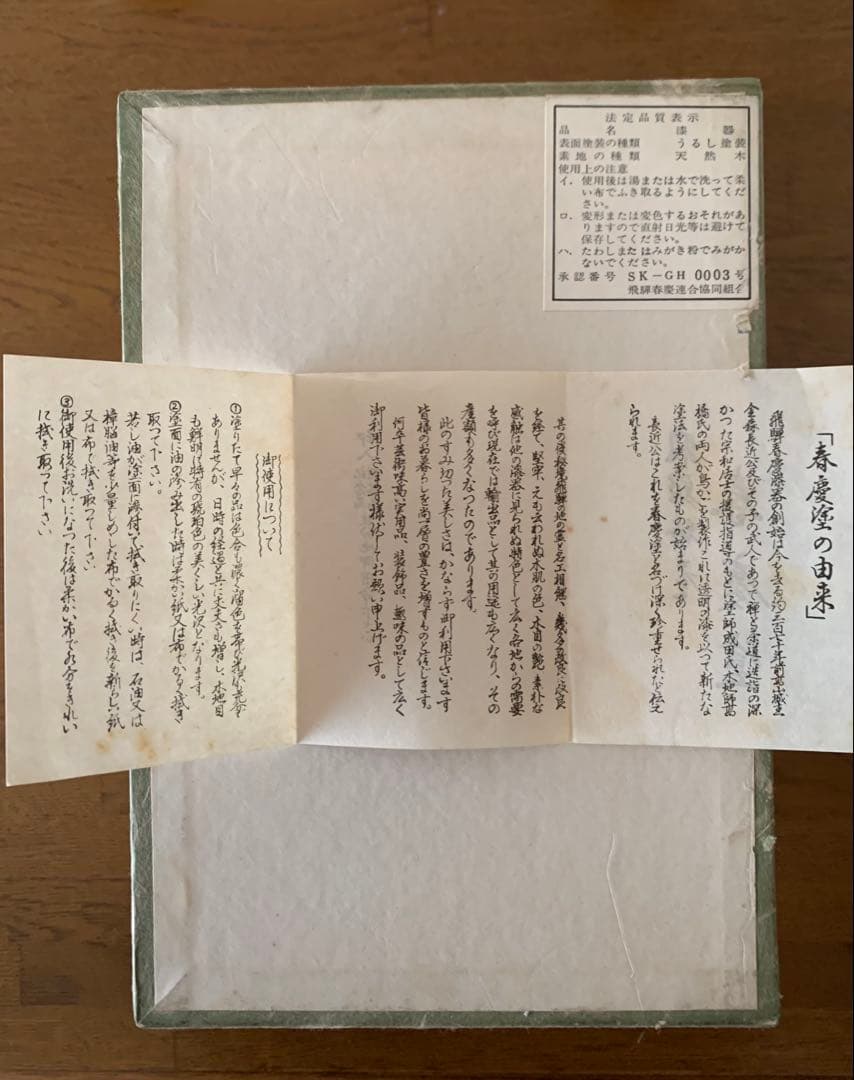 法定品質表示
品名 漆器
表面塗装の種類 うるし塗装
素地の種類 天然木
使用上の注意
イ．使用後は湯または水で洗って柔
い布でふき取るようにしてくだ
さい。
ロ．変形または変色するおそれがあ
りますので直射日光等は避けて
保存してください。
ハ．たわしまたはみがき粉でみがか
ないでください。
承認番号 SK-GH 0003号
飛騨春慶連合協同組合
「春慶塗の由来」
飛騨春慶漆器の創始は今を去る約三百七十年前高山城主
金森長近公及びその子の武人であつて禅と茶道に造詣の深
かつた宗和居士の援護指導のもとに塗師成田氏、木地師高
橋氏の両人が
製作、これに透明の漆を以つて新たな
塗法を考案したものが始まりであります。
長近公はこれを春慶塗と名づけ深く珍重せられたと伝え
られます。
其の後
飛騨の地
と名工相継ぎ、幾多の
改良
を経て、堅牢、えも云われぬ木肌の色、木目の艶、素朴な
感触は他の漆器に見られぬ特色として広く各地からの需要
を呼び現在では輸出品として其の用途も広くなり、その
産額も多くなつたのであります。
此のすみ切つた美しさは、かならず御利用下さいます
皆様のお暮らしを尚一層の豊さを増すものと信じます。
何卒芸術味高い実用品、装飾品、趣味の品として広く
御利用下さいます様伏してお願い申上げます。
御使用について
①塗りたて早々の品は色合も濃く溜色を帯び光沢も充分で
ありませんが、日時の経過と共に丈夫さも増し、木地目
も鮮明に特有の琥珀色の美くしい光沢となります。
②塗面に油の滲み出した時は柔かい紙又は布でかるく拭き
取つて下さい。
若し油が塗面に添付いて拭き取りにくい時は、石油又は
樟脳油等を少量しめした布でかるく拭き後を新らしい紙
又は布で拭き取つて下さい。
③御使用後お洗いになつた後は柔かい布で水分をきれい
に拭き取つて下さい